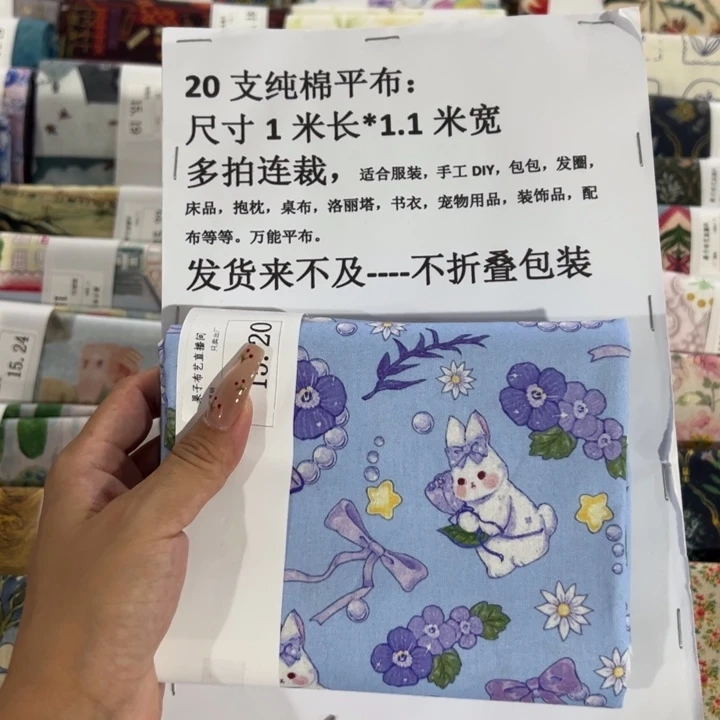 20 支纯棉平布：
尺寸 1 米长*1.1 米宽
多拍连裁，适合服装，手工 DIY，包包，发圈，
床品，抱枕，桌布，洛丽塔，书衣，宠物用品，装饰品，配
布等等。万能平布。
发货来不及----不折叠包装
果子布艺直播间
15.20
15.24
15.19